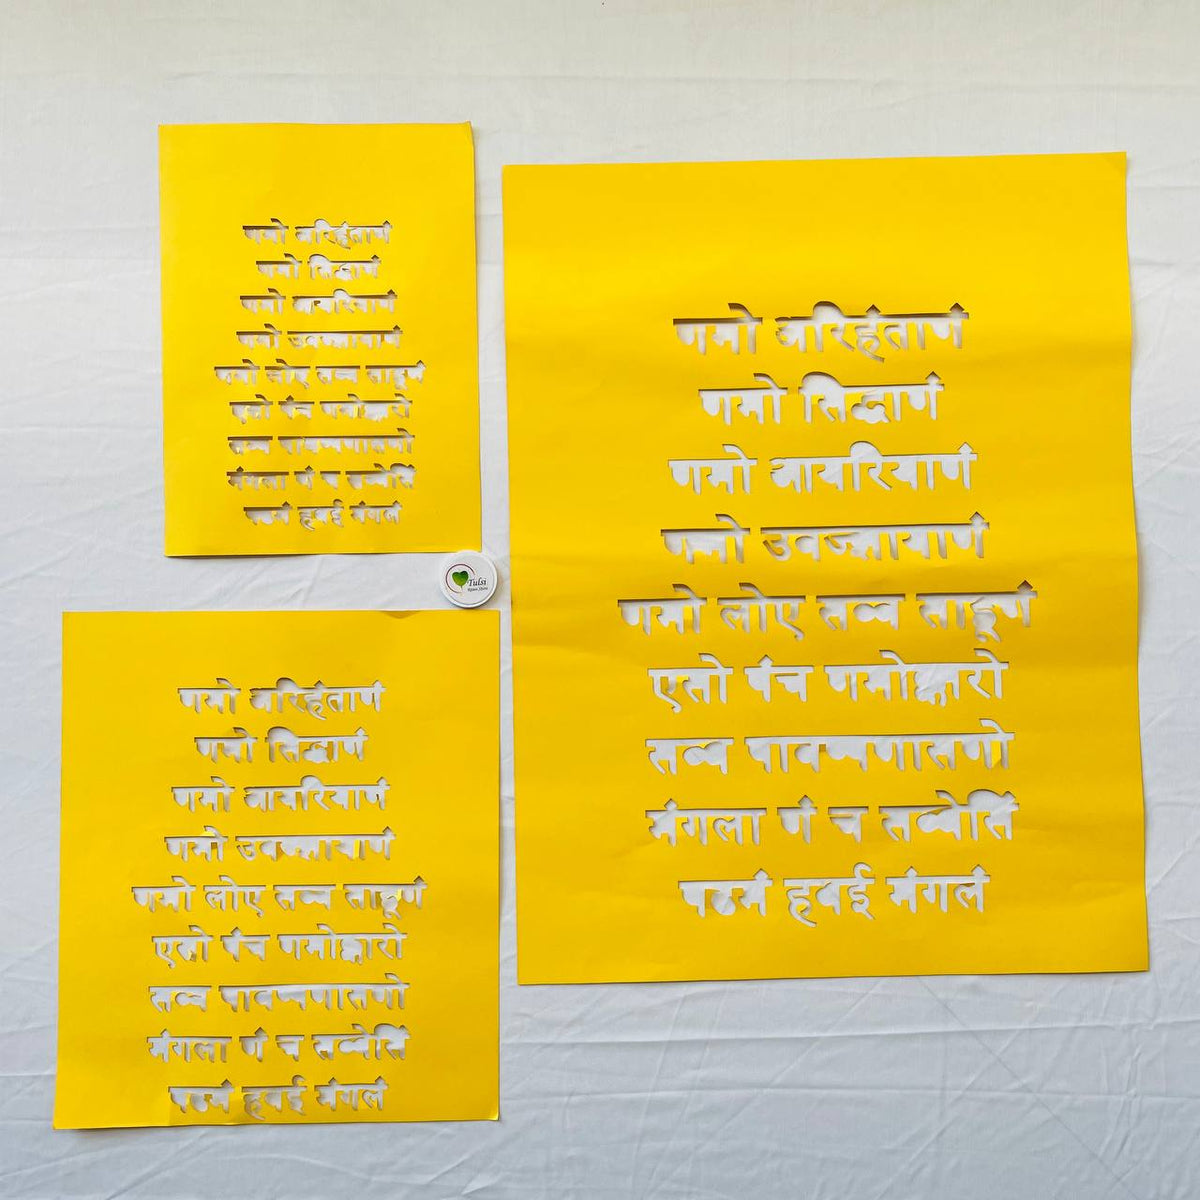 णमो अरिहंताणं
णमो सिद्धाणं
णमो आयरियाणं
णमो उवज्झायाणं
णमो लोए सव्व साहूणं
एसो पंच णमोक्कारो
सव्व पावप्पणासणो
मंगला णं च सव्वेसिं
पढमं हवई मंगलं
Tulsi
णमो अरिहंताणं
णमो सिद्धाणं
णमो आयरियाणं
णमो उवज्झायाणं
णमो लोए सव्व साहूणं
एसो पंच णमोक्कारो
सव्व पावप्पणासणो
मंगला णं च सव्वेसिं
पढमं हवई मंगलं
णमो अरिहंताणं
णमो सिद्धाणं
णमो आयरियाणं
णमो उवज्झायाणं
णमो लोए सव्व साहूणं
एसो पंच णमोक्कारो
सव्व पावप्पणासणो
मंगला णं च सव्वेसिं
पढमं हवई मंगलं